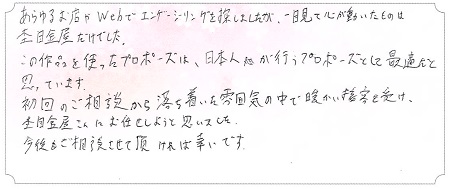 あらゆるお店やWebでエンゲージリングを探しましたが、一目見て心が動いたものは
杢目金屋だけでした。
この作品を使ったプロポーズは、日本人が行うプロポーズとして最適だと
思っています。
初回のご相談から落ち着いた雰囲気の中で暖かい接客を受け、
杢目金屋さんにお任せしようと思いました。
今後もご相談させて頂ければ幸いです。